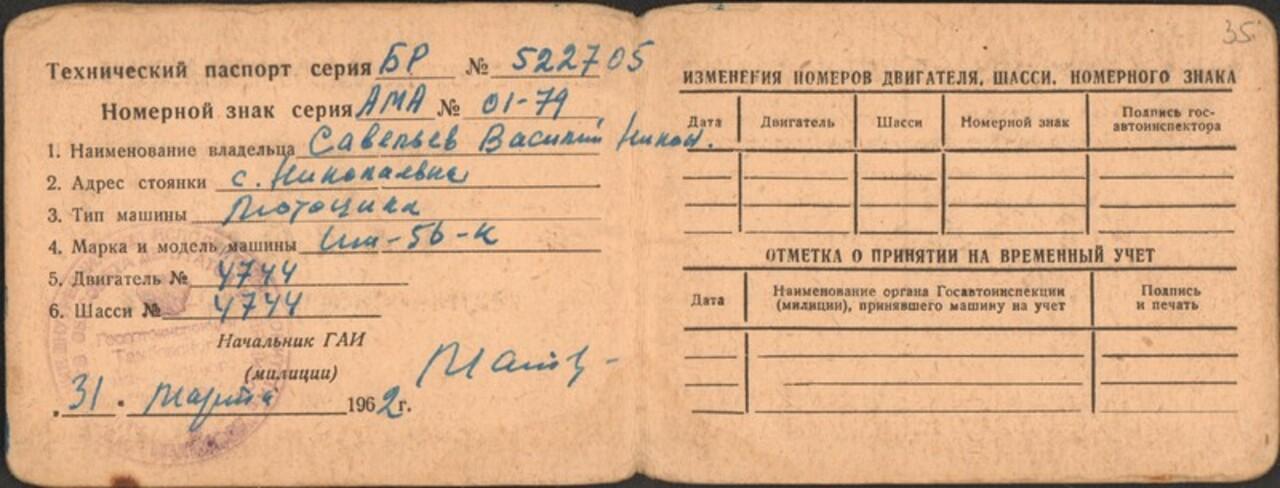 Технический паспорт серия БР № 522705
Номерной знак серия АМА № 01-79
1. Наименование владельца Савельев Василий Никон.
2. Адрес стоянки с. Николаевка
3. Тип машины Мотоцикл
4. Марка и модель машины Иж-56-К
5. Двигатель № 4744
6. Шасси № 4744
Начальник ГАИ
(милиции)
„31" марта 1962 г.
35
ИЗМЕНЕНИЯ НОМЕРОВ ДВИГАТЕЛЯ, ШАССИ, НОМЕРНОГО ЗНАКА
Дата Двигатель Шасси Номерной знак Подпись гос-
автоинспектора
ОТМЕТКА О ПРИНЯТИИ НА ВРЕМЕННЫЙ УЧЕТ
Дата Наименование органа Госавтоинспекции Подпись
(милиции), принявшего машину на учет и печать